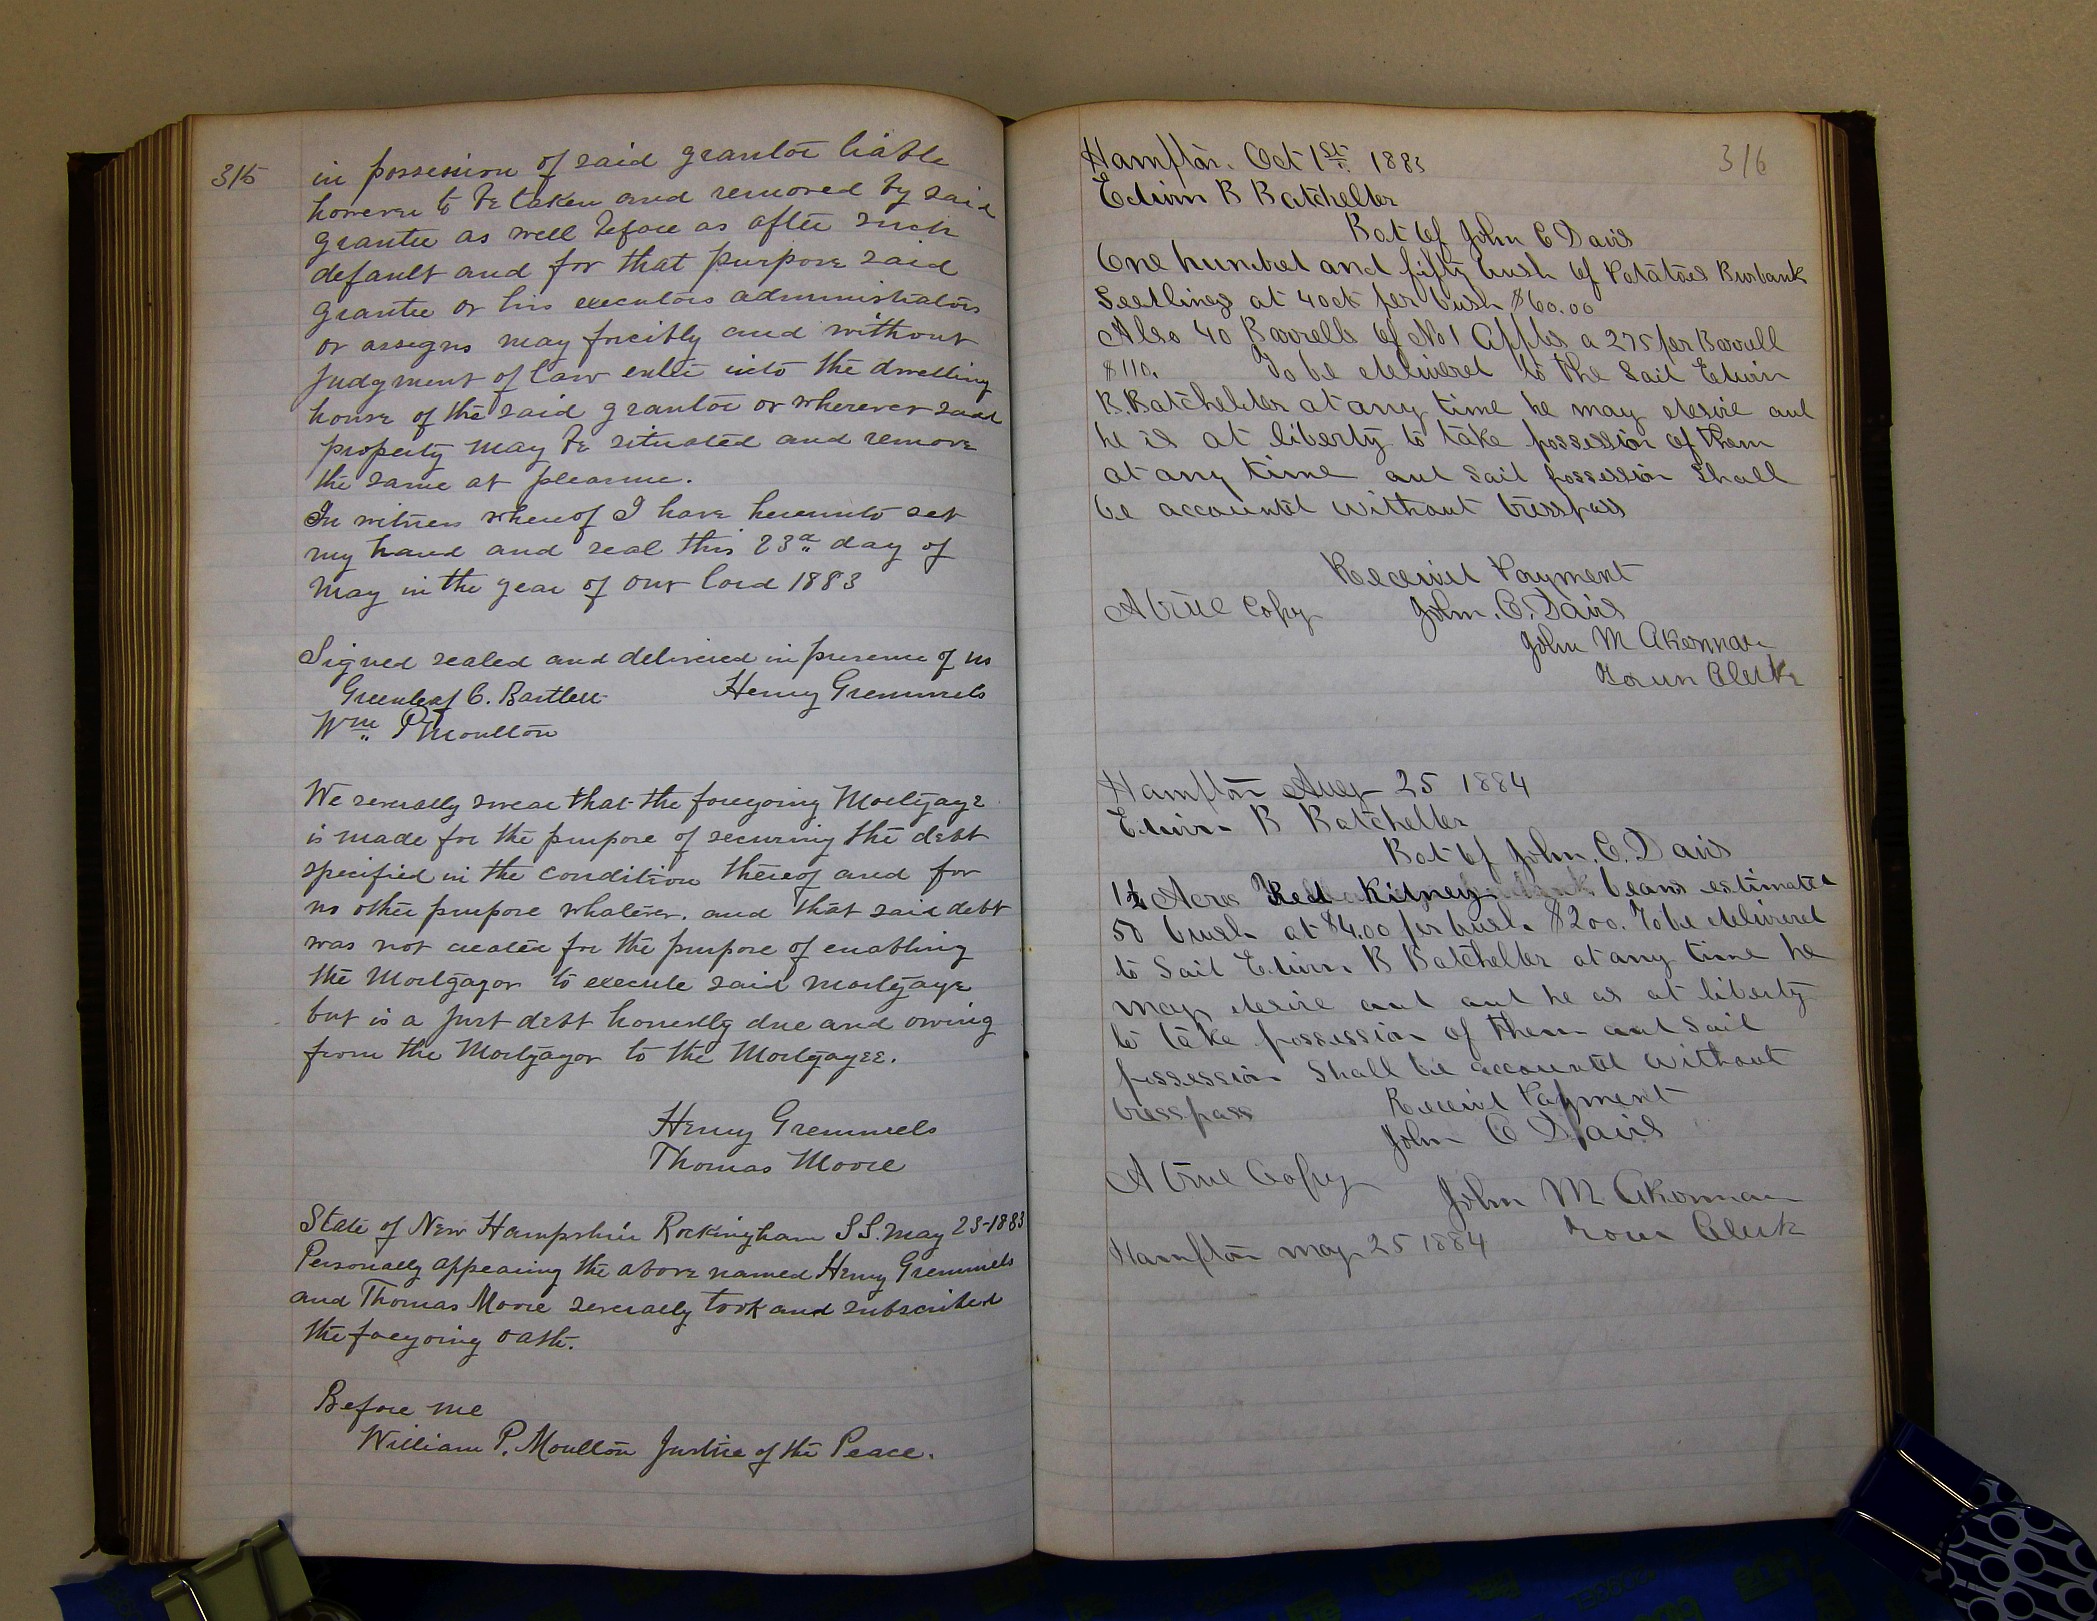 315
in possession of said grantor liable
however to be taken and removed by said
grantee as well before as after such
default and for that purpose said
grantee or his executors administrators
or assigns may forcibly and without
judgment of law enter into the dwelling
house of the said grantor or wherever said
property may be situated and remove
the same at pleasure.
In witness whereof I have hereunto set
my hand and seal this 23d day of
May in the year of our lord 1883
Signed sealed and delivered in presence of us
Greenleaf C. Bartlett Henry Gremmels
Wm P Moulton
We severally swear that the foregoing Mortgage
is made for the purpose of securing the debt
specified in the condition thereof and for
no other purpose whatever. and that said debt
was not created for the purpose of enabling
the Mortgagor to execute said mortgage
but is a just debt honestly due and owing
from the Mortgagor to the Mortgagee.
Henry Gremmels
Thomas Moore
State of New Hampshire Rockingham SS. May 23-1883
Personally appearing the above named Henry Gremmels
and Thomas Moore severally took and subscribed
the foregoing oath.
Before me
William P. Moulton Justice of the Peace.
316
Hampton. Oct 1st. 1883
Edwin B Batchelder
Bot of John C Davis
One hundred and fifty bush of Potatoes Burbank
Seedlings at 40ct per bush $60.00
Also 40 Barrells of No 1 Apples a 275 per Barrell
$110. To be delivered to the said Edwin
B. Batchelder at any time he may desire and
he is at liberty to take possession of them
at any time and said possession shall
be accounted without tresspass
Received Payment
A true Copy John. C. Davis
John M Akerman
Town Clerk
Hampton Aug 25 1884
Edwin B Batchelder
Bot of John. C. Davis
1½ Acre Red Kidney beans estimated
50 bush at $4.00 per bush. $200. To be delivered
to said Edwin B Batchelder at any time he
may desire and and he as at liberty
to take possession of them and said
possession shall be accounted without
tresspass Received Payment
John C Davis
A true Copy John M. Akerman
Hampton May 25 1884 Town Clerk